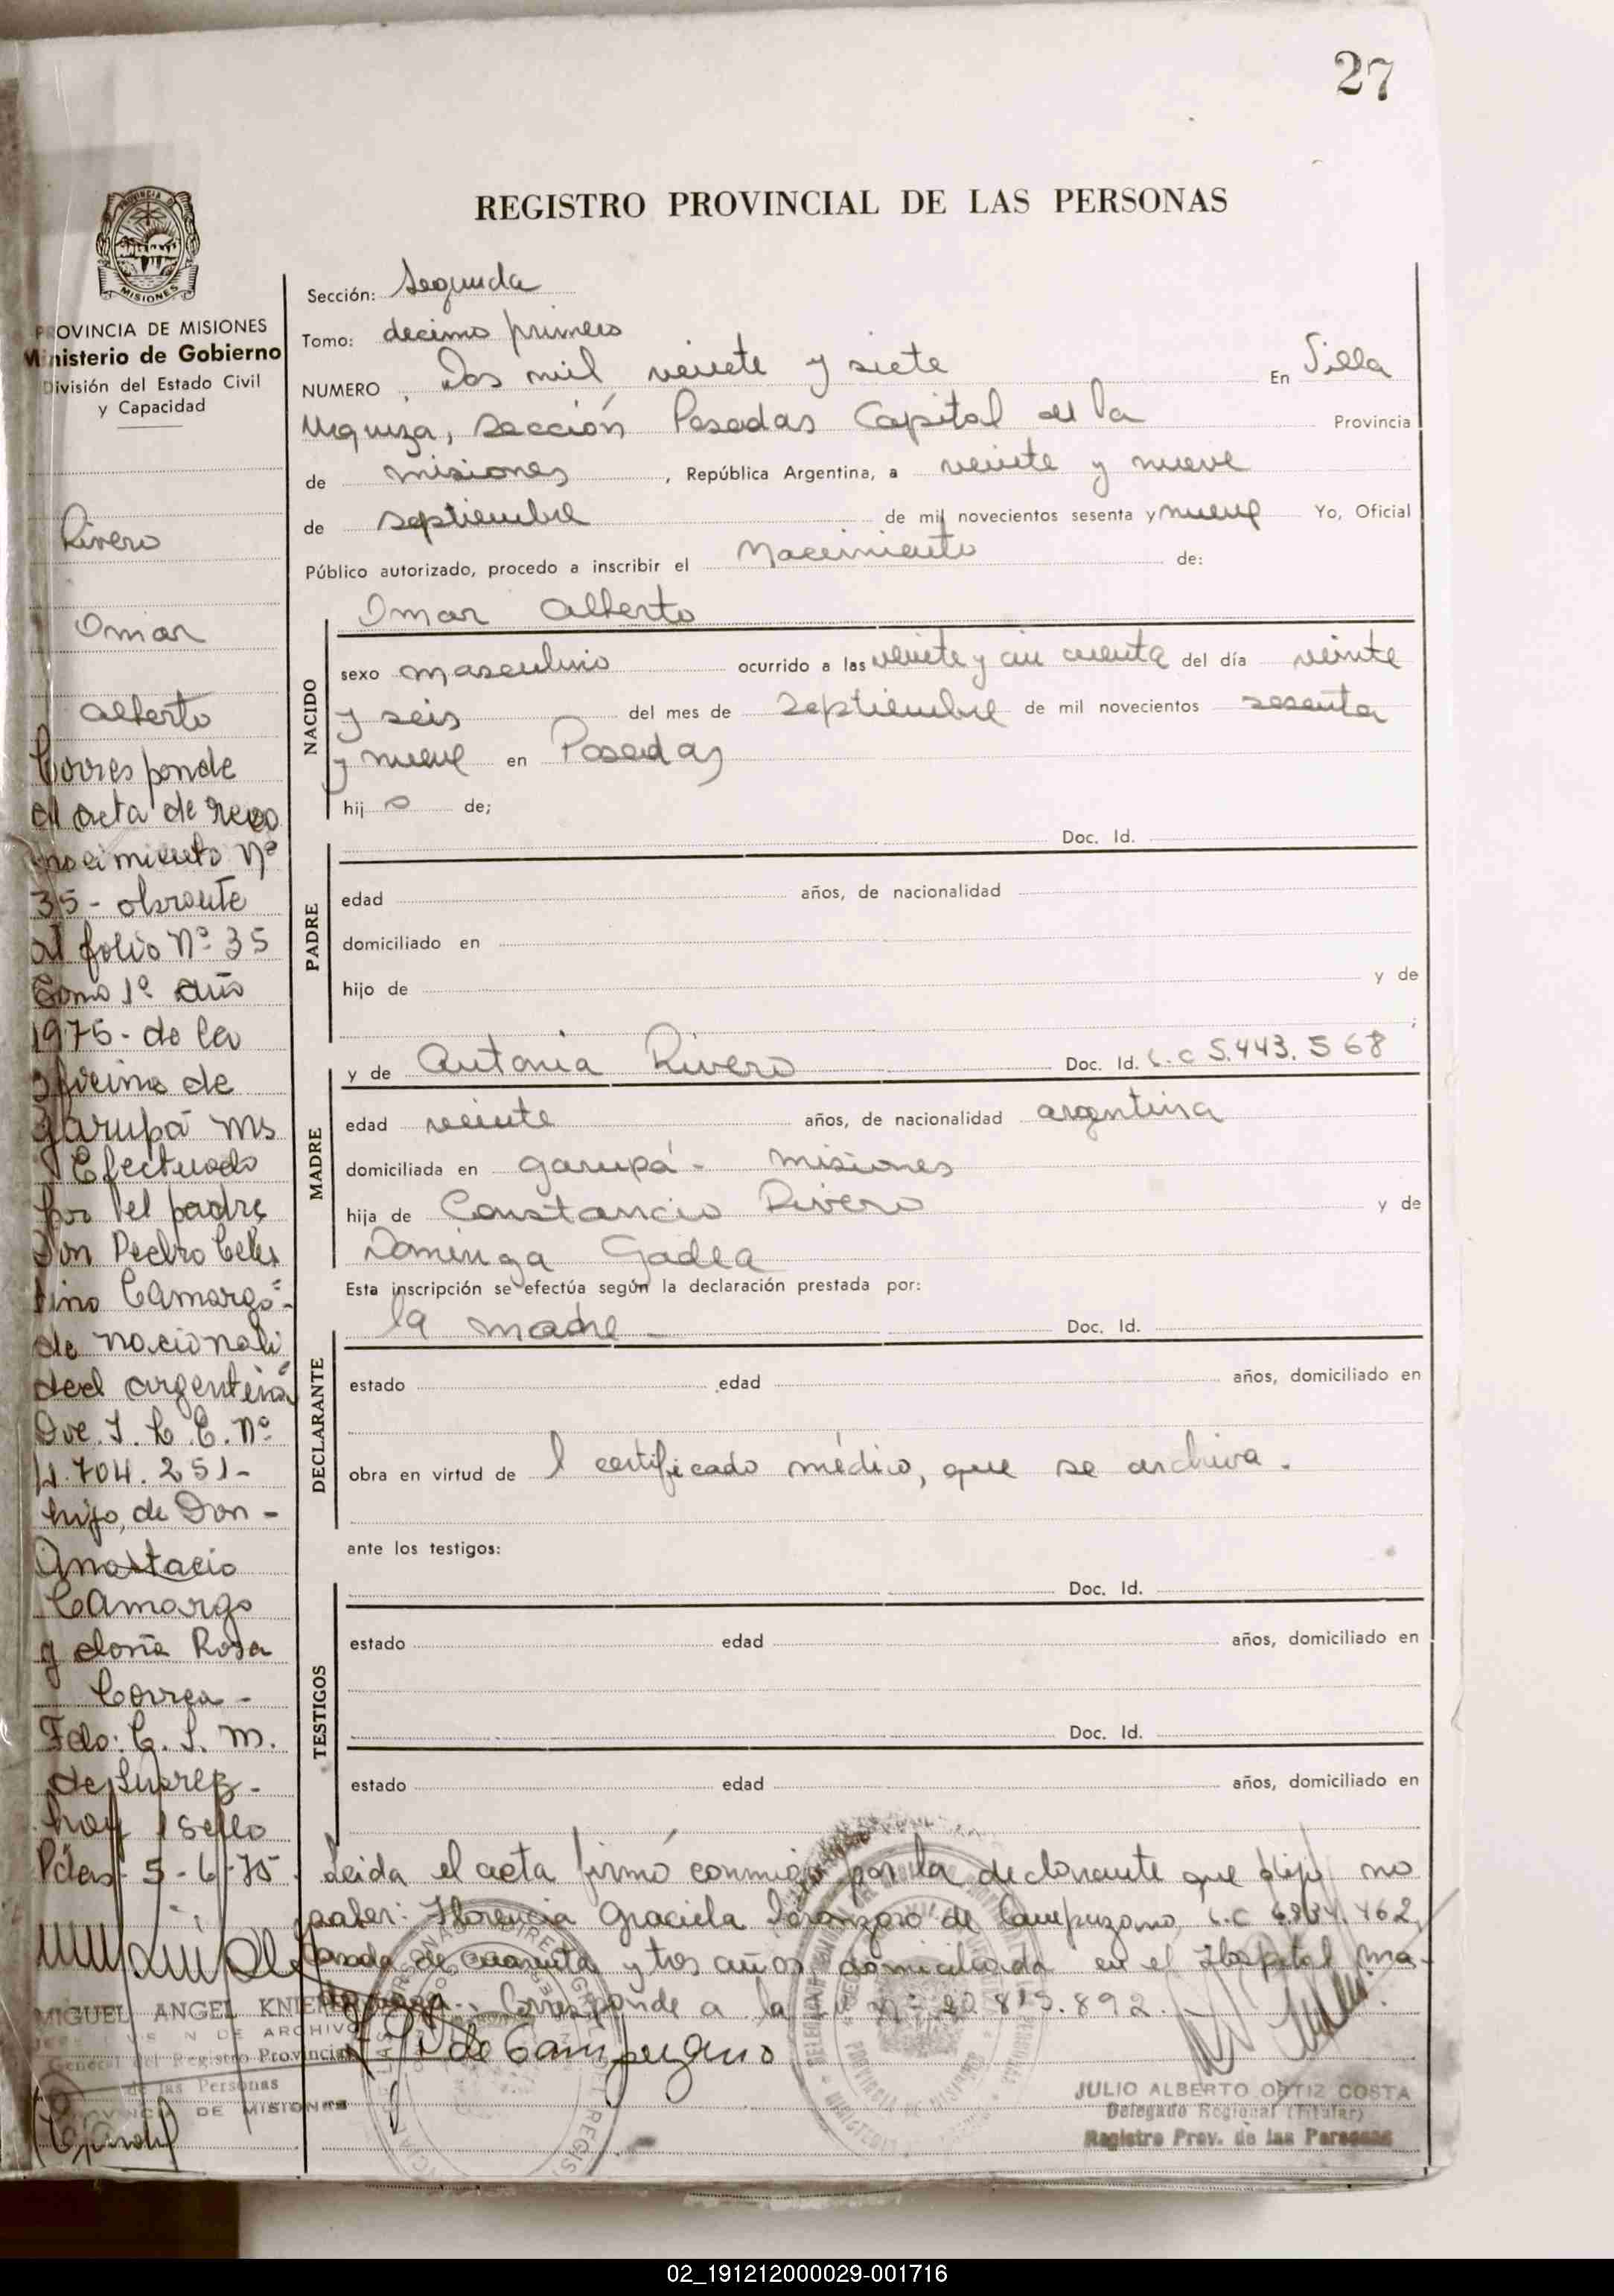 27
REGISTRO PROVINCIAL DE LAS PERSONAS
MISIONES
PROVINCIA DE MISIONES
Ministerio de Gobierno
División del Estado Civil
y Capacidad
Rivero
Omar
Alberto
Corresponde
al acta de reco
nocimiento Nº
35 - obrante
al folio Nº 35
Tomo 1º año
1975 - de la
oficina de
Garupá Ms
Efectuado
por el padre
Don Pedro Celes
tino Camargo -
de nacionali
dad argentina
Que. I. L. E. Nº
704.251 -
hijo, de Don -
Anastacio
Camargo
y doña Rosa
Correa -
Fdo: C. S. M.
de Suarez -
hay 1 sello
Pdas 5-6-75
MIGUEL ANGEL
DE ARCHIVO
General del Registro Provincial
de las Personas
PROVINCIA DE MISIONES
Sección: Segunda
Tomo: decimo primero
NUMERO Dos mil veinte y siete En Villa
Urquiza, Sección Posadas Capital de la Provincia
de misiones, República Argentina, a veinte y nueve
de septiembre de mil novecientos sesenta y nueve Yo, Oficial
Público autorizado, procedo a inscribir el Nacimiento de:
Omar Alberto
NACIDO
sexo masculino ocurrido a las veinte y cin cuenta del día veinte
y seis del mes de septiembre de mil novecientos sesenta
y nueve en Posadas
hij o de;
Doc. Id.
PADRE
edad años, de nacionalidad
domiciliado en
hijo de y de
y de Antonia Rivero Doc. Id. L.C 5.443.568
MADRE
edad veinte años, de nacionalidad argentina
domiciliada en garupá - misiones
hija de Constancio Rivero y de
Dominga Gadea
Esta inscripción se efectúa según la declaración prestada por:
la madre - Doc. Id.
DECLARANTE
estado edad años, domiciliado en
obra en virtud de l certificado médico, que se archiva.
ante los testigos:
Doc. Id.
TESTIGOS
estado edad años, domiciliado en
Doc. Id.
estado edad años, domiciliado en
Leida el acta firmó conmigo por la declarante que dijo no
saber: Florencia Graciela de Campuzano, L.C 462,
casada de cuarenta y tres años domiciliada en el Hospital Ma-
Corresponde a la 815.892.
de Campuzano
JULIO ALBERTO ORTIZ COSTA
Delegado Regional (Titular)
Registro Prov. de las Personas
02_191212000029-001716